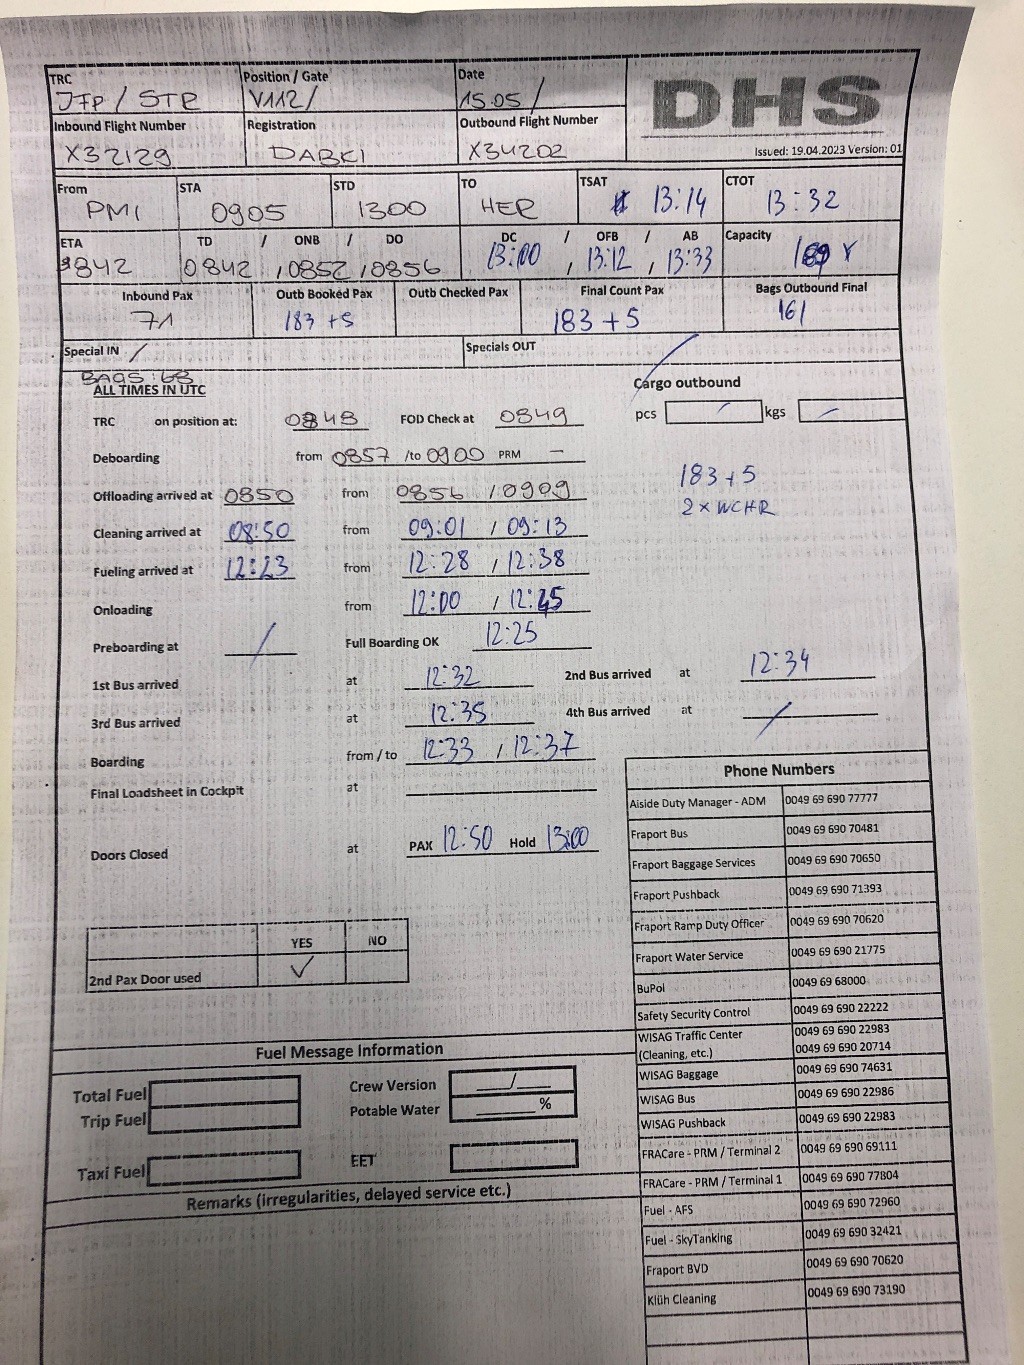 TRC Position / Gate Date
JFP / STR V112/ 15.05 /
DHS
Inbound Flight Number Registration Outbound Flight Number
X32129 DABKI X34202
Issued: 19.04.2023 Version: 01
From STA STD TO TSAT CTOT
PMI 0905 1300 HER 13:14 13:32
ETA TD / ONB / DO DC / OFB / AB Capacity
0842 0842 / 0852 / 0856 13:00 / 13:12 / 13:33 189 Y
Inbound Pax Outb Booked Pax Outb Checked Pax Final Count Pax Bags Outbound Final
71 183 +5 183 + 5 161
Special IN / Specials OUT /
BAGS: 68
ALL TIMES IN UTC Cargo outbound
TRC on position at: 0848 FOD Check at 0849 pcs kgs
Deboarding from 0857 /to 0900 PRM –
183 + 5
Offloading arrived at 0850 from 0856 / 0909
2 x WCHR
Cleaning arrived at 08:50 from 09:01 / 09:13
Fueling arrived at 12:23 from 12:28 / 12:38
Onloading from 12:00 / 12:45
Preboarding at / Full Boarding OK 12:25
1st Bus arrived at 12:32 2nd Bus arrived at 12:34
3rd Bus arrived at 12:35 4th Bus arrived at /
Boarding from / to 12:33 / 12:37
Final Loadsheet in Cockpit at
Doors Closed at PAX 12:50 Hold 13:00
YES NO
2nd Pax Door used ✓
Phone Numbers
Aiside Duty Manager - ADM 0049 69 690 77777
Fraport Bus 0049 69 690 70481
Fraport Baggage Services 0049 69 690 70650
Fraport Pushback 0049 69 690 71393
Fraport Ramp Duty Officer 0049 69 690 70620
Fraport Water Service 0049 69 690 21775
BuPol 0049 69 68000
Safety Security Control 0049 69 690 22222
WISAG Traffic Center 0049 69 690 22983
(Cleaning, etc.) 0049 69 690 20714
WISAG Baggage 0049 69 690 74631
WISAG Bus 0049 69 690 22986
WISAG Pushback 0049 69 690 22983
FRACare - PRM / Terminal 2 0049 69 690 69111
FRACare - PRM / Terminal 1 0049 69 690 77804
Fuel - AFS 0049 69 690 72960
Fuel - SkyTanking 0049 69 690 32421
Fraport BVD 0049 69 690 70620
Klüh Cleaning 0049 69 690 73190
Fuel Message Information
Total Fuel Crew Version /
Trip Fuel Potable Water %
Taxi Fuel EET
Remarks (irregularities, delayed service etc.)